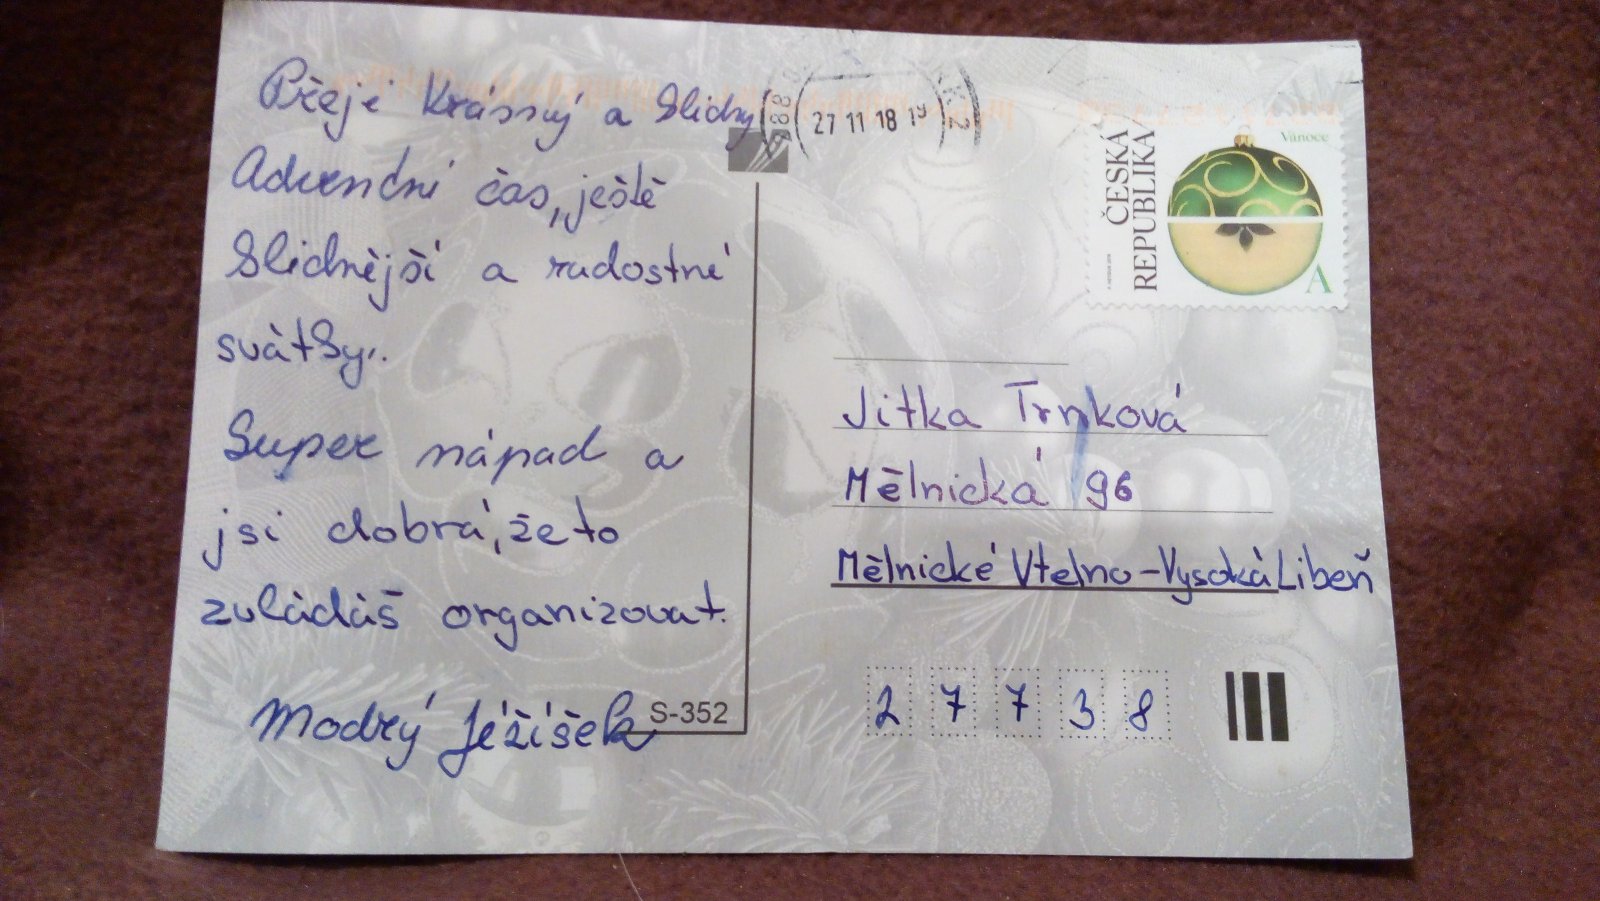 Přeje Krásný a Klidný
Adventní čas, ještě
klidnější a radostné
svátky.
Super nápad a
jsi dobrá, že to
zvládáš organizovat.
Modrý Ježíšek
S-352
27 11 18 19
ČESKÁ
REPUBLIKA
Vánoce
A
Jitka Trnková
Mělnická 96
Mělnické Vtelno - Vysoká Libeň
27738